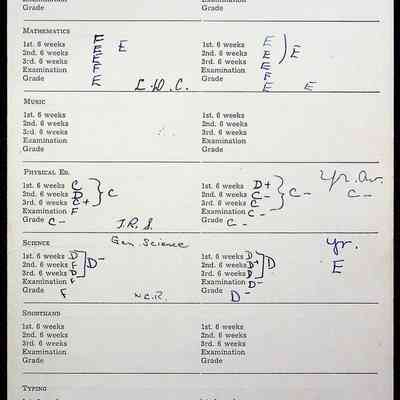 Grade Grade
MATHEMATICS
1st. 6 weeks E 1st. 6 weeks E
2nd. 6 weeks E E 2nd. 6 weeks E E
3rd. 6 weeks E 3rd. 6 weeks E
Examination F Examination F
Grade E L.W.C. Grade E E
MUSIC
1st. 6 weeks 1st. 6 weeks
2nd. 6 weeks 2nd. 6 weeks
3rd. 6 weeks 3rd. 6 weeks
Examination Examination
Grade Grade
PHYSICAL ED. Yr. Av.
1st. 6 weeks C 1st. 6 weeks D+
2nd. 6 weeks D C 2nd. 6 weeks C- C- C-
3rd. 6 weeks C+ 3rd. 6 weeks C
Examination F Examination C-
Grade C- J.R.S. Grade C-
SCIENCE Gen. Science Yr.
1st. 6 weeks D 1st. 6 weeks D
2nd. 6 weeks F D- 2nd. 6 weeks D+ D E
3rd. 6 weeks D 3rd. 6 weeks D
Examination F Examination D-
Grade F Grade D-
SHORTHAND
1st. 6 weeks 1st. 6 weeks
2nd. 6 weeks 2nd. 6 weeks
3rd. 6 weeks 3rd. 6 weeks
Examination Examination
Grade Grade
TYPING